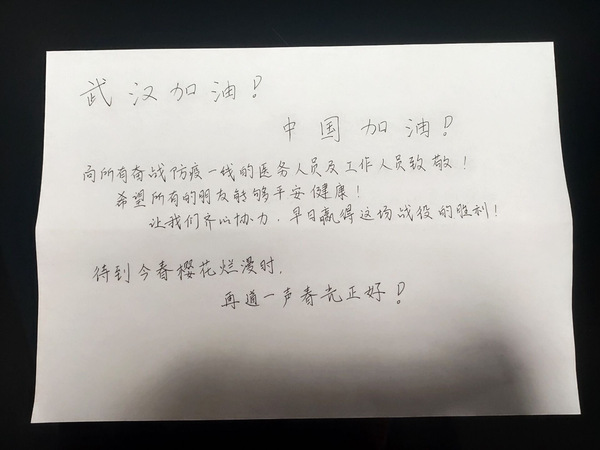 武汉加油!
中国加油!
向所有奋战防疫一线的医务人员及工作人员致敬!
希望所有的朋友能够平安健康!
让我们齐心协力,早日赢得这场战役的胜利!
待到今春樱花烂漫时,
再道一声春光正好!